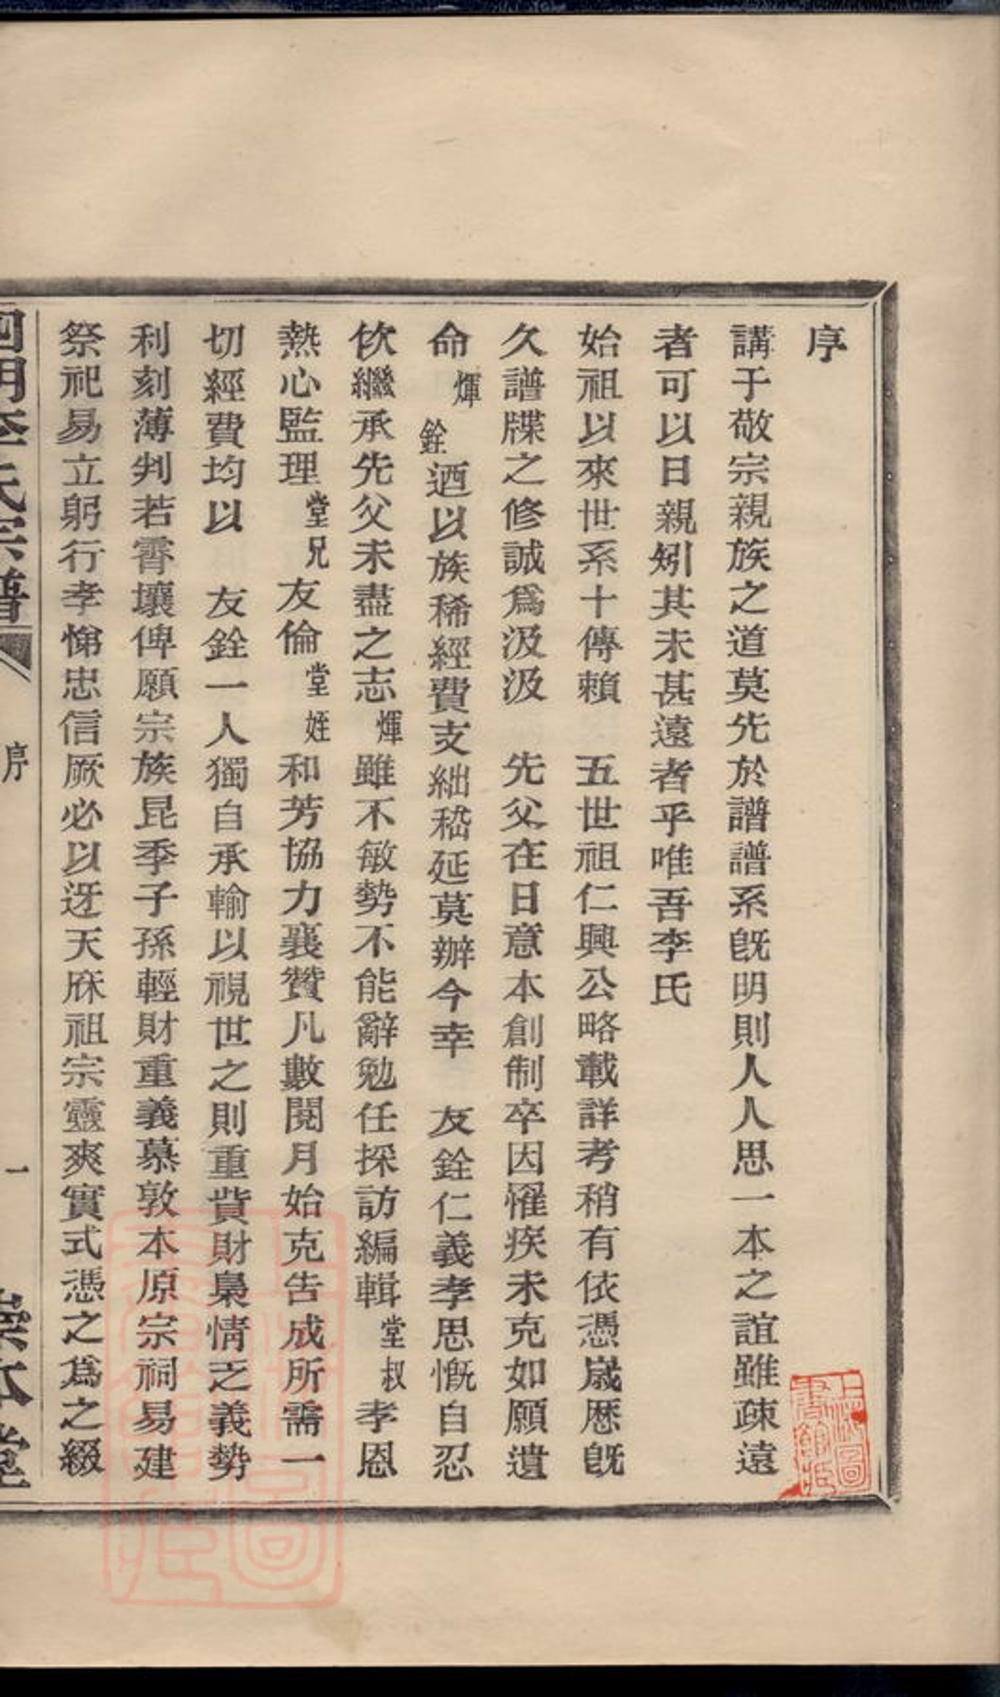 序
講于敬宗親族之道莫先於譜譜系旣明則人人思一本之誼雖疎遠
者可以日親矧其未甚遠者乎唯吾李氏
始祖以來世系十傳賴　五世祖仁興公略載詳考稍有依憑歲歷旣
久譜牒之修誠爲汲汲　先父在日意本創制卒因罹疾未克如願遺
命煇銓迺以族稀經費支絀嵇延莫辦今幸　友銓仁義孝思慨自忍
依繼承先父未盡之志煇雖不敏勢不能辭勉任採訪編輯堂叔孝恩
熱心監理堂兄友倫堂姪和芳協力襄贊凡數閱月始克告成所需一
切經費均以　友銓一人獨自承輸以視世之則重貲財梟情乏義勢
利刻薄判若霄壤俾願宗族昆季子孫輕財重義慕敦本原宗祠易建
祭祀易立躬行孝悌忠信厥必以迓天庥祖宗靈爽實式憑之爲之綴
四明李氏宗譜
序
一
崇本堂
上海圖書館藏